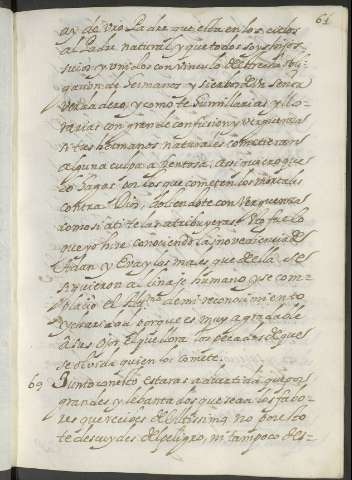 61
ay de Vro Padre que esta en los cielos
al Padre natural y que todos soys hijos
suios y unidos con vinculo de estrecha obli-
gacion de hermanos y siervos de un señor
verdadero, y como te humillarias y llo-
rarias con grande confusion y verguenza
si tus hermanos naturales cometieran
alguna culpa afrentosa, asi quiero que
lo hagas con los que cometen los mortales
contra Dios, doliendote con verguenza
como si a ti te las atribuyeras. Esto fue lo
que yo hice conociendo la inovediencia de
Adan y Eva y los males que de ella se
siguieron al linaje humano y se com-
placio el Altmo. de mi reconocimiento
y charidad porque es muy agradable
a sus ojos el que llora los pecados de que
se olvida quien los comete.
69 Junto con esto estaras advertida que por
grandes y lebantados que sean los fabo-
res que recives del Altissimo no por esto
te descuydes del peligro, ni tampoco des-